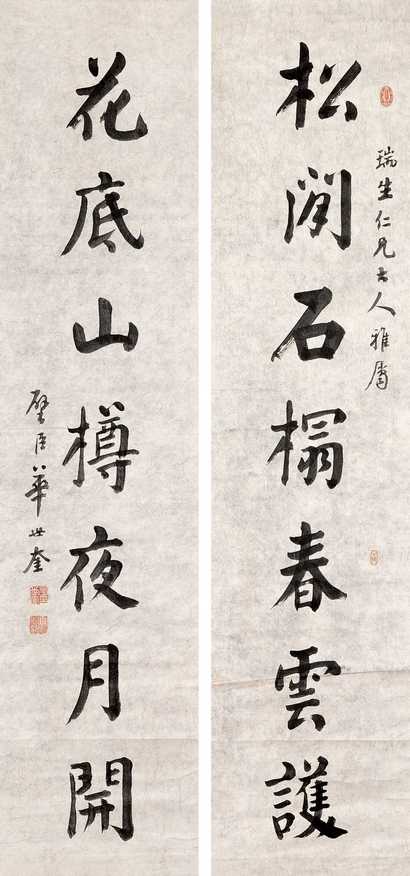 瑞生仁兄大人雅屬
松間石榻春雲護
花底山樽夜月開
璧臣華世奎